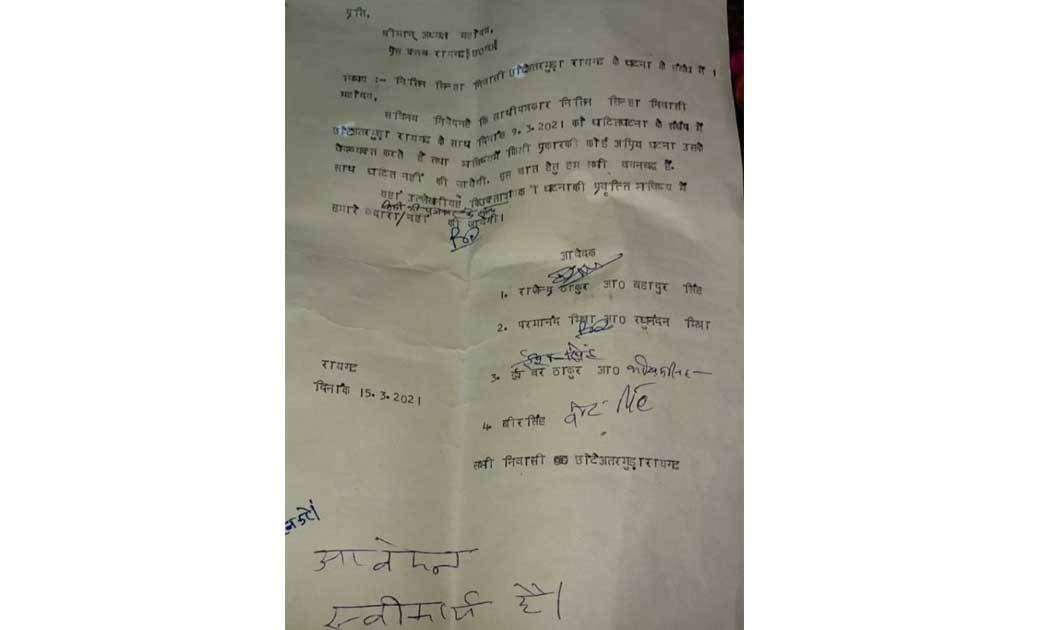 प्रति,
श्रीमान् अध्यक्ष महोदय,
प्रेस क्लब रायगढ़
विषय :- नितिन सिन्हा निवासी छोटेअतरमुड़ा रायगढ के घटना के संबंध में ।
महोदय,
सविनय निवेदन है कि साथी पत्रकार नितिन सिन्हा निवासी
छोटेअतरमुड़ा रायगढ के साथ दिनांक 9.3.2021 को घटित घटना के संबंध में
व्यक्त करते है तथा भविष्य में किसी प्रकार की कोई अप्रिय घटना उसके
साथ घटित नहीं की जावेगी. इस बात हेतु हम सभी वचनबद्ध है.
यहां उल्लेखनीय है घटना की प्रवृत्ति भविष्य में
हमारे द्वारा/नहीं की जावेगी।
आवेदक
1. राजेन्द्र ठाकुर आ0 बहादुर सिंह
2. परमानंद मिश्रा आ0 रघुनंदन मिश्रा
3. ईश्वर ठाकुर आ0
रायगढ
दिनांक 15.3.2021
4. बीर सिंह
सभी निवासी छोटेअतरमुड़ा रायगढ
आवेदन
स्वीकार्य है।